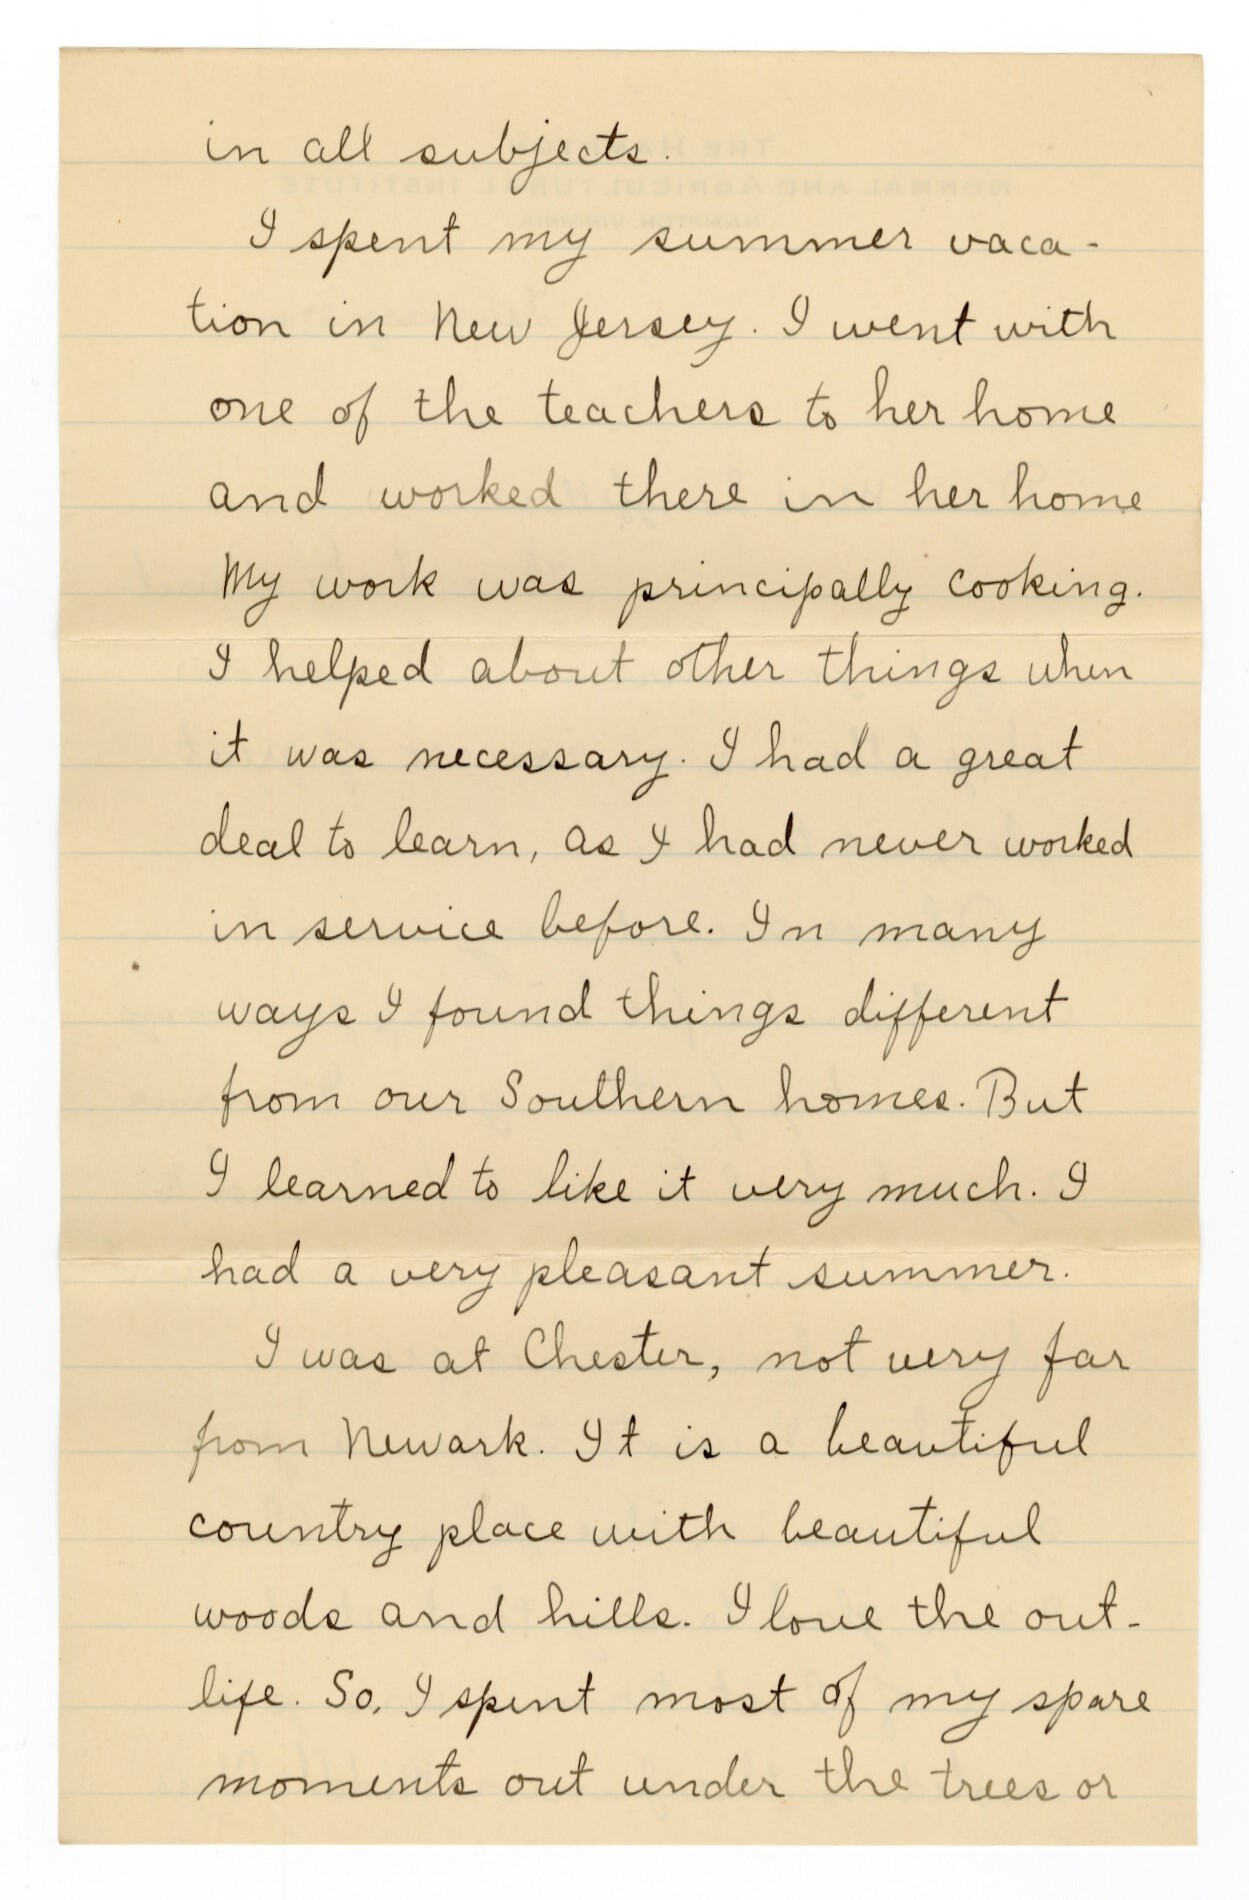 in all subjects.
I spent my summer vaca-
tion in New Jersey. I went with
one of the teachers to her home
and worked there in her home
My work was principally cooking.
I helped about other things when
it was necessary. I had a great
deal to learn, as I had never worked
in service before. In many
ways I found things different
from our Southern homes. But
I learned to like it very much. I
had a very pleasant summer.
I was at Chester, not very far
from Newark. It is a beautiful
country place with beautiful
woods and hills. I love the out-
life. So, I spent most of my spare
moments out under the trees or